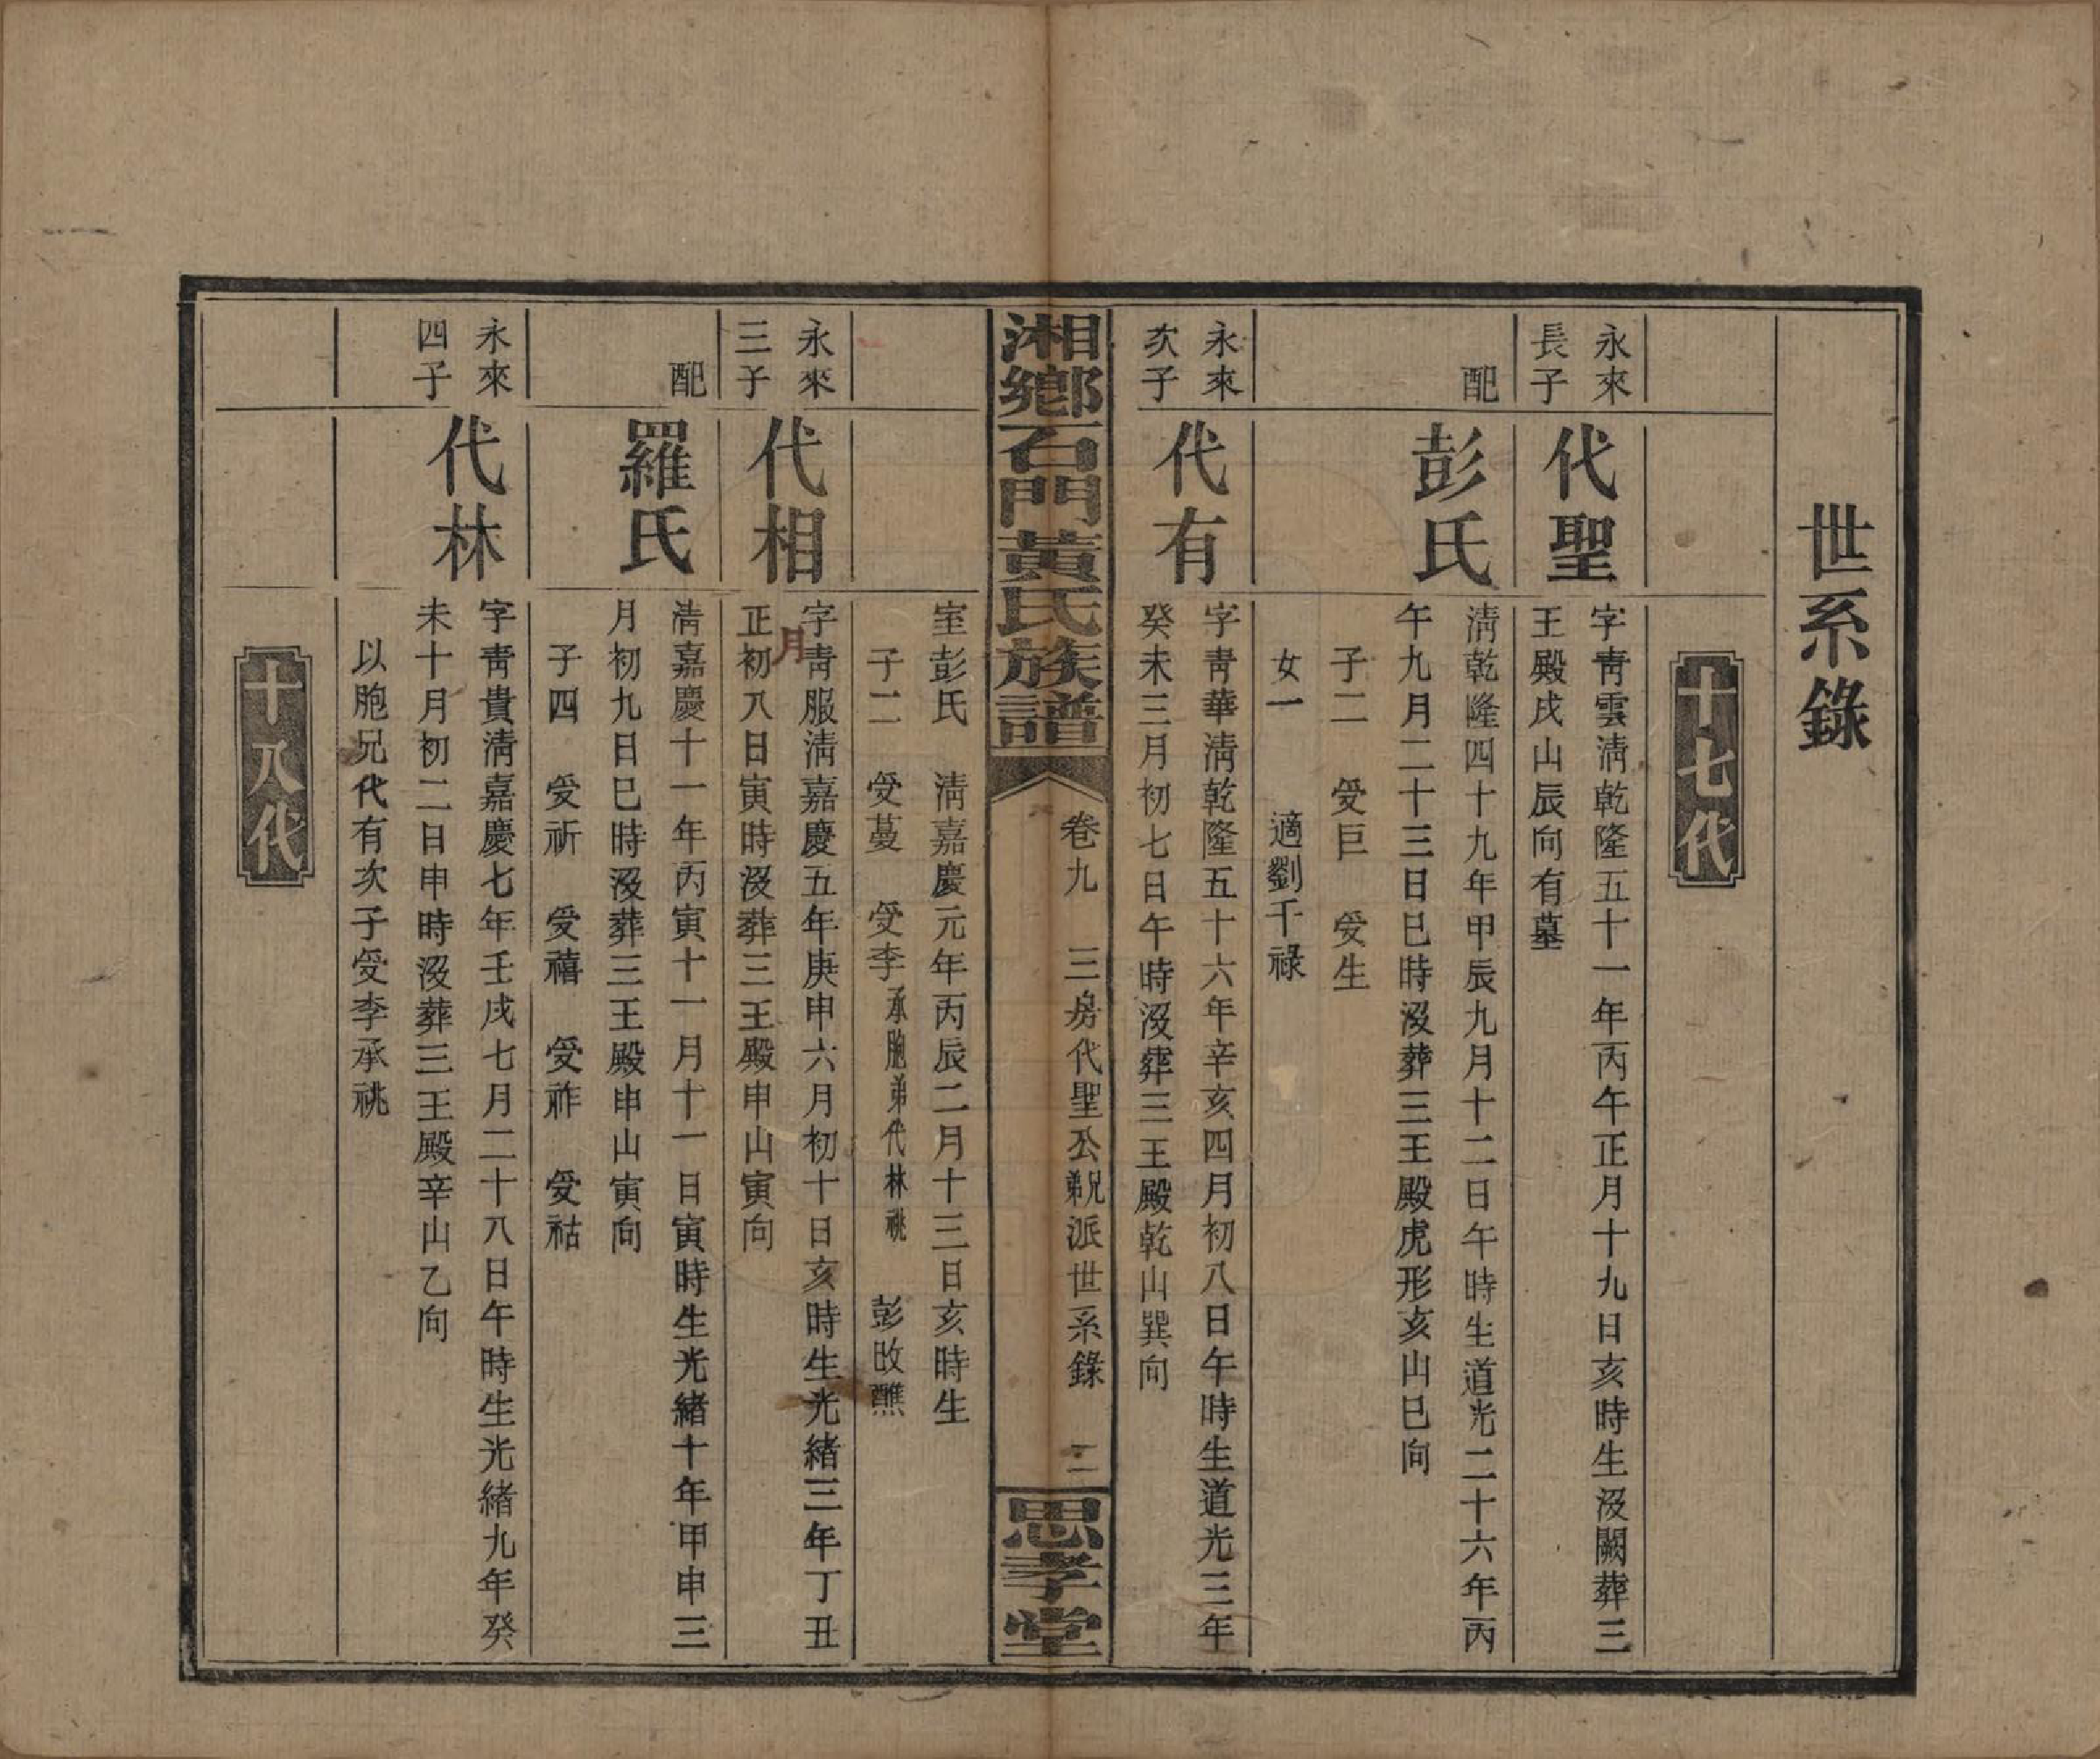 世系錄
十七代
永來
長子
代聖
字靑雲淸乾隆五十一年丙午正月十九日亥時生歿闕葬三
王殿戌山辰向有墓
配
彭氏
淸乾隆四十九年甲辰九月十二日午時生道光二十六年丙
午九月二十三日巳時歿葬三王殿虎形亥山巳向
子二 受巨 受生
女一 適劉千祿
永來
次子
代有
字靑華淸乾隆五十六年辛亥四月初八日午時生道光三年
癸未三月初七日午時歿葬三王殿乾山巽向
湘鄉石門黃氏族譜
卷九 三房代聖公兄弟派世系錄 二
思孝堂
室彭氏 淸嘉慶元年丙辰二月十三日亥時生
子二 受蔓 受李承胞弟代林祧 彭改醮
永來
三子
代相
字靑服淸嘉慶五年庚申六月初十日亥時生光緒三年丁丑
正月初八日寅時歿葬三王殿申山寅向
配
羅氏
淸嘉慶十一年丙寅十一月十一日寅時生光緒十年甲申三
月初九日巳時歿葬三王殿申山寅向
子四 受祈 受禧 受祚 受祜
永來
四子
代林
字靑貴淸嘉慶七年壬戌七月二十八日午時生光緒九年癸
未十月初二日申時歿葬三王殿辛山乙向
以胞兄代有次子受李承祧
十八代